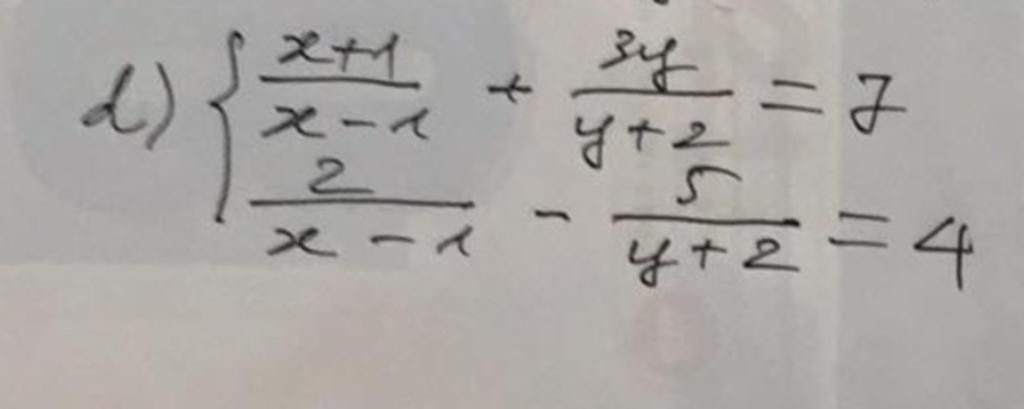 d) { (x+1)/(x-1) + 3y/(y+2) = 7
2/(x-1) - 5/(y+2) = 4